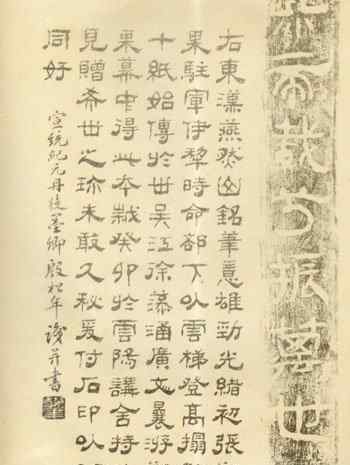 帝載兮振萬世
右東漢燕然山銘筆意雄勁光緒初張
果駐軍伊犁時命部下以雲梯登高搨
十紙始傳於世吳江徐藻涵廣文曩游
果幕中得此本歲癸卯於雲陽講舍持
見贈希世之珍未敢久秘爰付石印以
同好
宣統紀元丹徒墨卿殷松年識并書